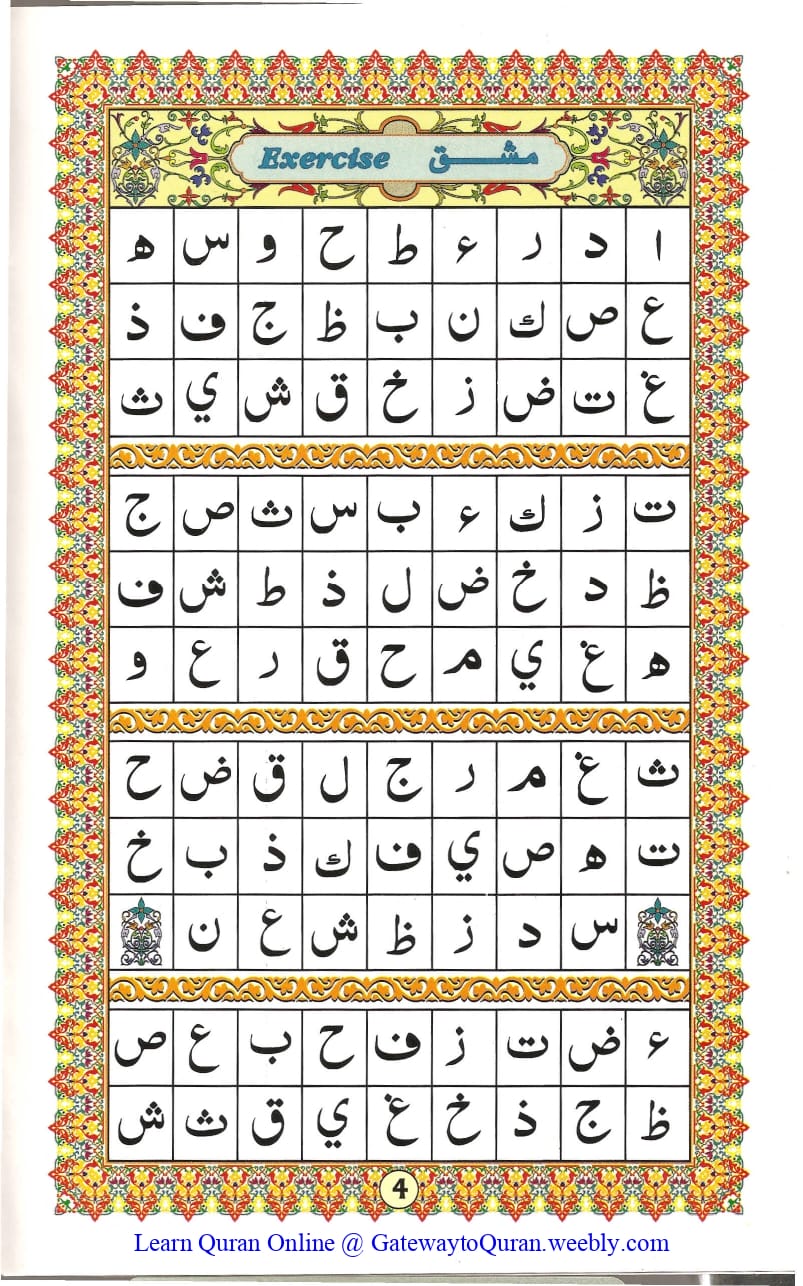 Exercise مشق
ا د ر ء ط ح و س ه
ع ص ك ن ب ظ ج ف ذ
غ ت ض ز خ ق ش ي ث
ت ز ك ء ب س ث ص ج
ظ د خ ض ل ذ ط ش ف
ه غ ي م ح ق ر ع و
ث غ م ر ج ل ق ض ح
ت ه ص ي ف ك ذ ب خ
س د ز ظ ش ع ن
ء ض ت ز ف ح ب ع ص
ظ ج ذ خ غ ي ق ث ش
4
Learn Quran Online @ GatewaytoQuran.weebly.com